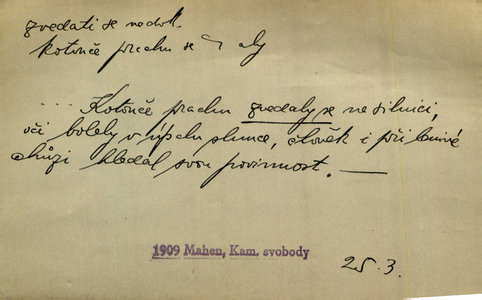 zvedati se nedok.
kotouče prachu se ~ aly
.... Kotouče prachu zvedaly se na silnici,
oči bolely v úpalu slunce, člověk i při línivé
chůzi hledal svou povinnost. —
1909 Mahen, Kam. svobody
25. 3.